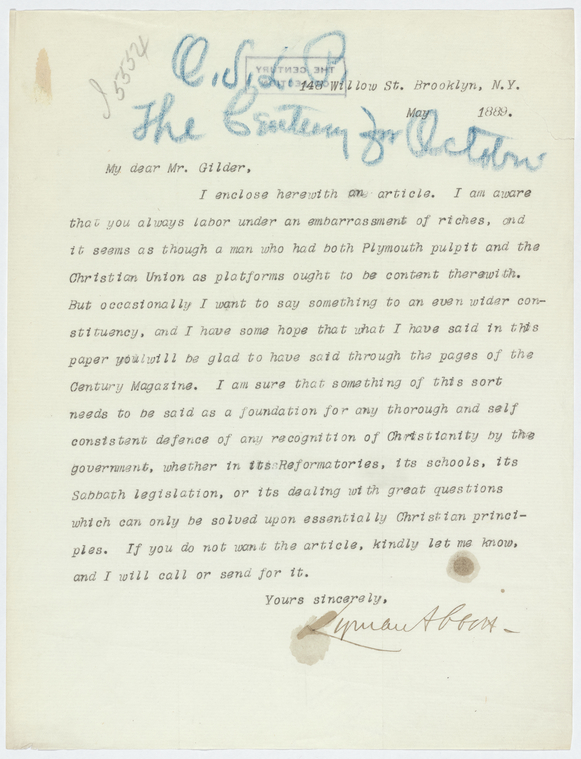 53354
C. S. L. P.
THE CENTURY
148 Willow St. Brooklyn, N.Y.
May 1889.
The Century for October
My dear Mr. Gilder,
I enclose herewith an article. I am aware
that you always labor under an embarrassment of riches, and
it seems as though a man who had both Plymouth pulpit and the
Christian Union as platforms ought to be content therewith.
But occasionally I want to say something to an even wider con-
stituency, and I have some hope that what I have said in this
paper you will be glad to have said through the pages of the
Century Magazine. I am sure that something of this sort
needs to be said as a foundation for any thorough and self
consistent defence of any recognition of Christianity by the
government, whether in its Reformatories, its schools, its
Sabbath legislation, or its dealing with great questions
which can only be solved upon essentially Christian princi-
ples. If you do not want the article, kindly let me know,
and I will call or send for it.
Yours sincerely,
Lyman Abbott